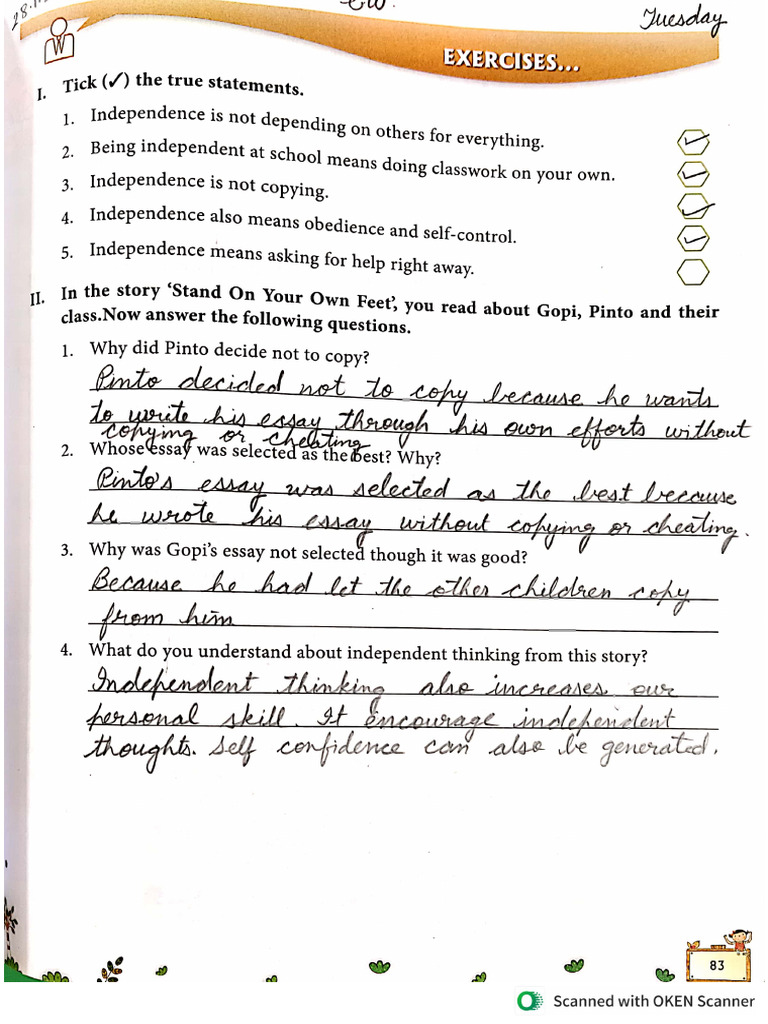 CW.
Tuesday
W
EXERCISES...
I. Tick (✓) the true statements.
1. Independence is not depending on others for everything. ✓
2. Being independent at school means doing classwork on your own. ✓
3. Independence is not copying. ✓
4. Independence also means obedience and self-control. ✓
5. Independence means asking for help right away.
II. In the story ‘Stand On Your Own Feet’, you read about Gopi, Pinto and their
class.Now answer the following questions.
1. Why did Pinto decide not to copy?
Pinto decided not to copy because he wants
to write his essay through his own efforts without
copying or cheating
2. Whose essay was selected as the best? Why?
Pinto's essay was selected as the best because
he wrote his essay without copying or cheating.
3. Why was Gopi’s essay not selected though it was good?
Because he had let the other children copy
from him
4. What do you understand about independent thinking from this story?
Independent thinking also increases our
personal skill. It encourage independent
thoughts. Self confidence can also be generated.
83
Scanned with OKEN Scanner